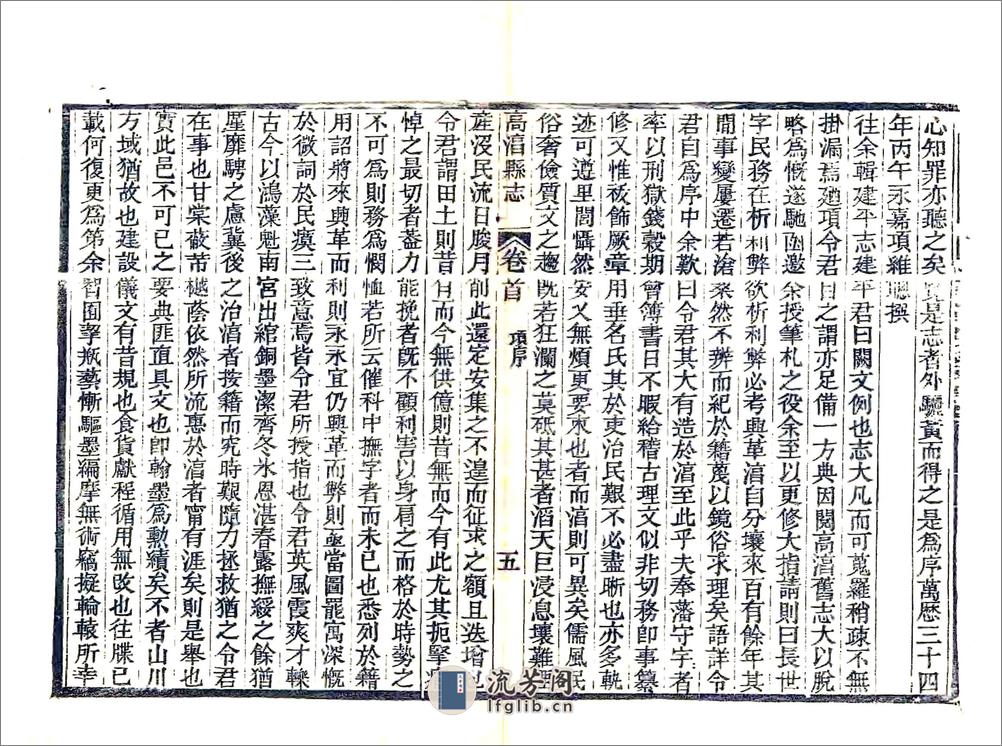 心知罪亦聽之矣是志者外驪黃而得之是為序萬歷三十四
年丙午永嘉項維聰撰
往余輯建平志建平君曰闕文例也志大凡而可蒐羅稍疎不無
掛漏焉廼項令君目之謂亦足備一方典因閱高淯舊志大以脫
略為慨遂馳函邀余授筆札之役余至以更修大指請則曰長世
字民務在析利弊欲析利弊必考興革淯自分壤來百有餘年其
間事變屢遷若滄桑然不辨而紀於籍蔑以鏡俗求理矣語詳令
君自為序中余歎曰令君其大有造於淯至此乎夫奉藩守字者
率以刑獄錢穀期會簿書日不暇給稽古理文似非切務即事纂
修又惟被飾厥章用垂名氏其於吏治民艱不必盡晰也亦多軌
迹可遵里閭懾然安又無煩更要束也者而淯則可異矣儒風民
俗奢儉質文之趨既若狂瀾之莫砥其甚者滔天巨浸息壤難
高淯縣志
卷首
項序
五
産沒民流日朘月削此還定安集之不遑而征求之額且迭增
令君謂田土則昔有而今無供億則昔無而今有此尤其扼擥
悼之最切者葢力能挽者旣不顧利害以身肩之而格於時勢之
不可為則務為憫恤若所云催科中撫字者而未已也悉列於籍
用詔將來興革而利則永永宜仍興革而弊則亟當圖罷寓深慨
於微詞於民瘼三致意焉皆令君所授指也令君英風霞爽才轢
古今以鴻藻魁南宮出綰銅墨潔齊冬氷恩湛春露撫綏之餘猶
厪靡騁之慮冀後之治淯者按籍而究時艱隨力拯救猶之令君
在事也甘棠蔽芾樾蔭依然所流惠於淯者甯有涯矣則是舉也
實此邑不可已之要典匪直具文也即翰墨為勳績矣不者山川
方域猶故也建設儀文有昔規也食貨獻程循用無改也往牒已
載何復更為第余智囿挈瓶藝慚驅墨編摩無術竊擬輪轅所幸
流芳阁
lfglib.cn